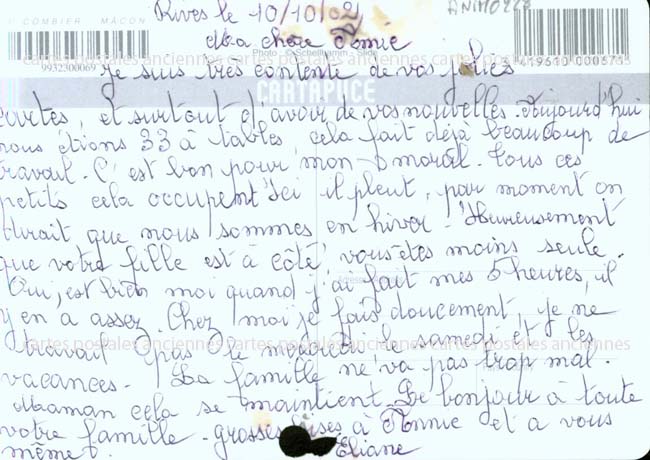 COMBIER MACON
ANIM0228
Rives le 10/10/02
9932300069
Photo - © Schellhamm - Slide
419610 000676
Ma chère Annie
Je suis très contente de vos jolies
CARTAPUCE
cartes, et surtout d'avoir de vos nouvelles. Aujourd'hui
nous étions 33 à tables, cela fait déjà beaucoup de
travail. C'est bon pour mon moral. tous ces
petits cela occupent. Ici il pleut, par moment on
dirait que nous sommes en hiver. Heureusement
que votre fille est à côté, vous êtes moins seule.
Oui, est bien moi quand j'ai fait mes 5 heures, il
y en a assez. Chez moi je fais doucement, je ne
travail pas le mercredi le samedi et les
vacances. La famille ne va pas trop mal.
Maman cela se maintient. Le bonjour à toute
votre famille. grosses bises à Annie et a vous
même. Eliane
cartes postales anciennes cartes postales anciennes cartes postales anciennes
cartes postales anciennes cartes postales anciennes cartes postales anciennes